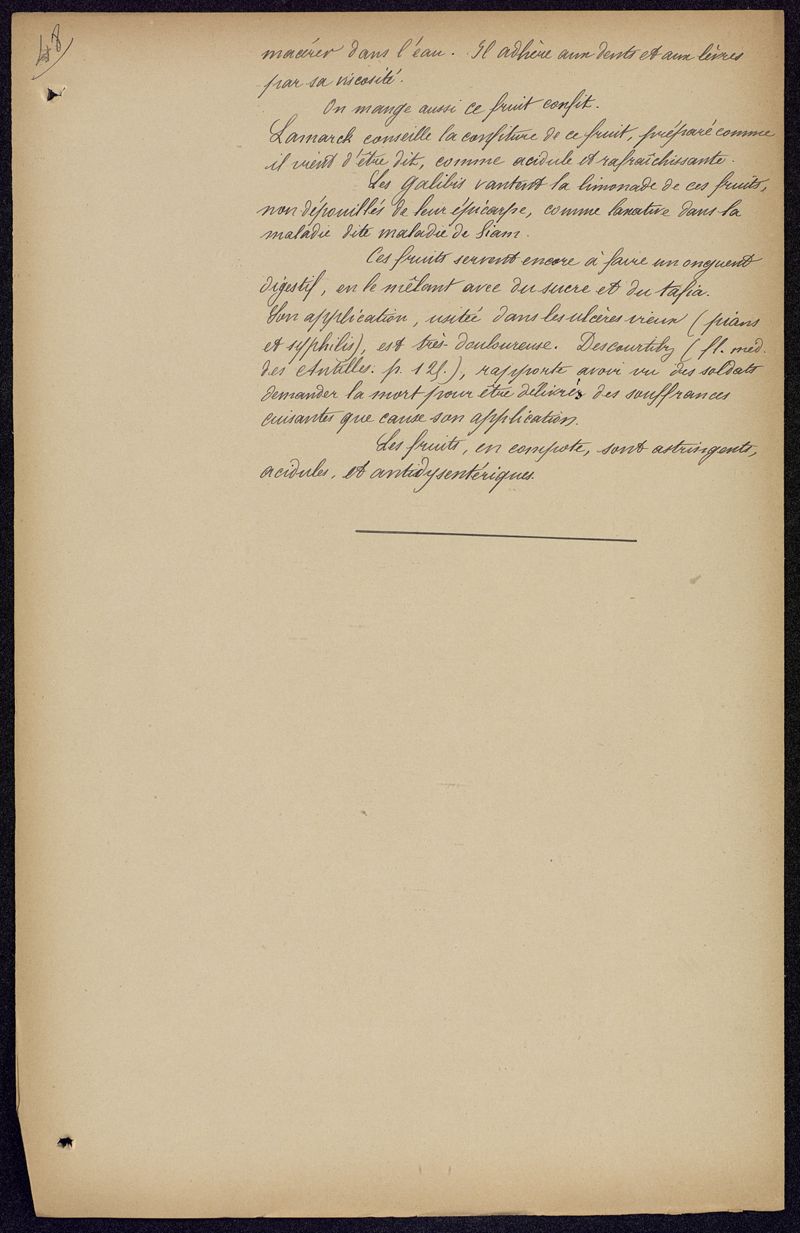 48
macérer dans l'eau. Il adhère aux dents et aux lèvres
par sa viscosité.
On mange aussi ce fruit confit.
Lamarck conseille la confiture de ce fruit, préparé comme
il vient d'être dit, comme acidule et rafraîchissante.
Les Galibis vantent la limonade de ces fruits,
non dépouillés de leur épicarpe, comme laxative dans la
maladie dite maladie de Siam.
Ces fruits servent encore à faire un onguent
digestif, en le mêlant avec du sucre et du tafia.
Son application, usitée dans les ulcères vieux (pians
et syphilis), est très-douloureuse. Descourtilz (fl. méd.
des Antilles. p. 125.), rapporte avoir vu des soldats
demander la mort pour être délivrés des souffrances
cuisantes que cause son application.
Les fruits, en compote, sont astringents,
acidules, et antidysentériques.